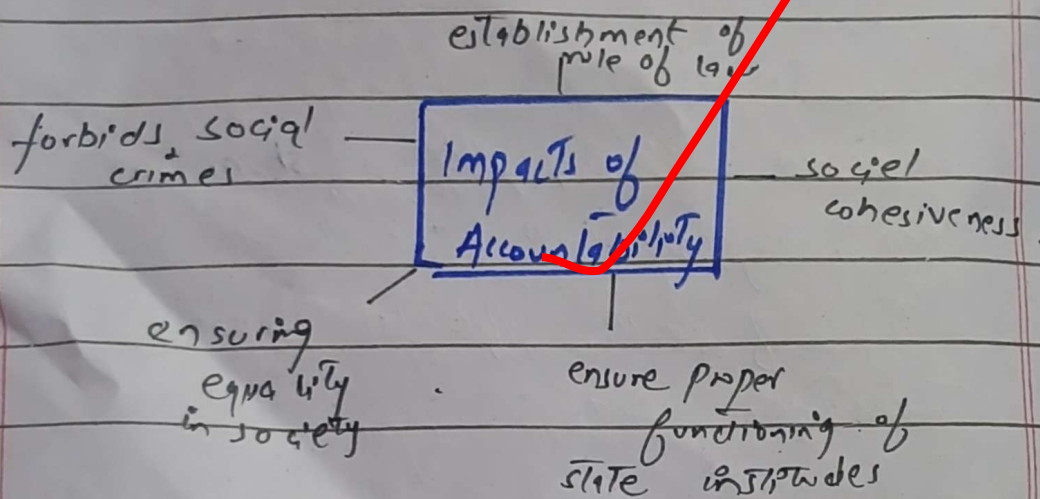 establishment of
rule of law
forbids social
crimes
Impacts of
Accountability
sociel
cohesiveness
ensuring
equality
in society
ensure proper
functioning of
state institudes